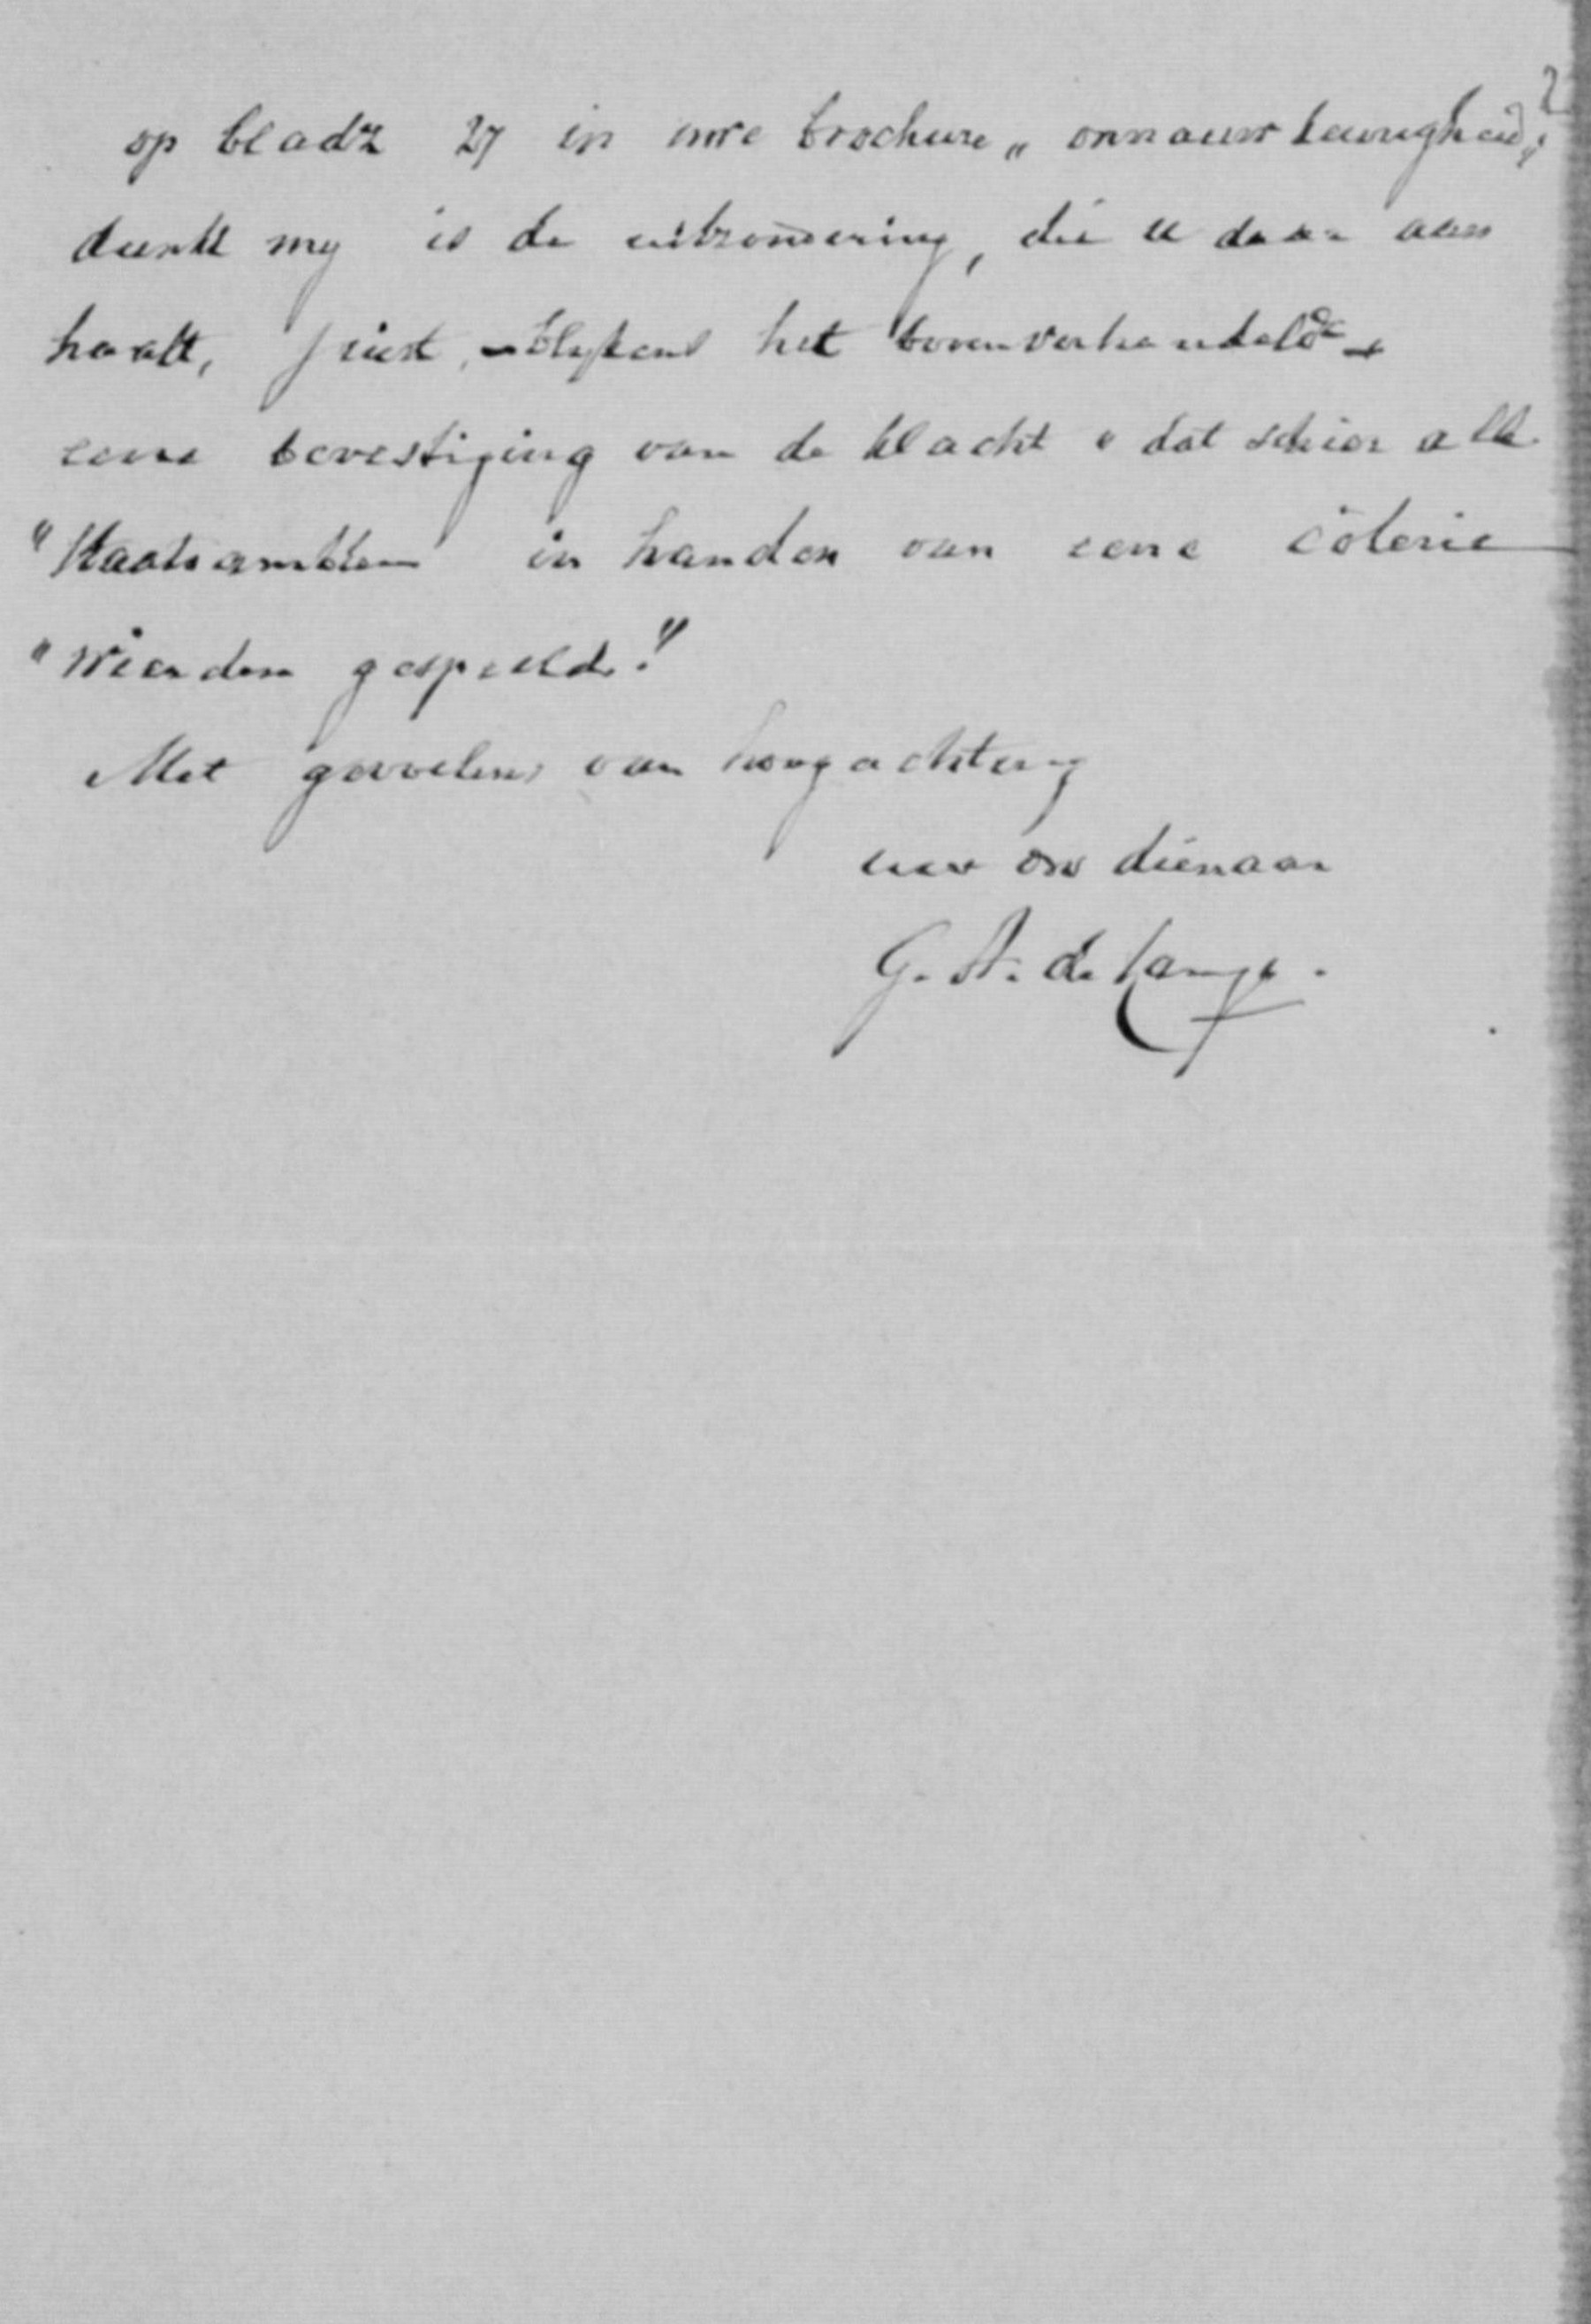 op bladz 27 in uwe brochure „onnauwkeurigheid,"
dunkt my is de uitzondering, die u daar aan
haalt, juist, - blijkens het bovenverhandelde -
eene bevestiging van de klacht „dat schier alle
"Staatsambten in handen van eene coterie
"wierden gespeeld."
Met gevoelens van hoogachting
uw dw dienaar
G. A. de Lange.